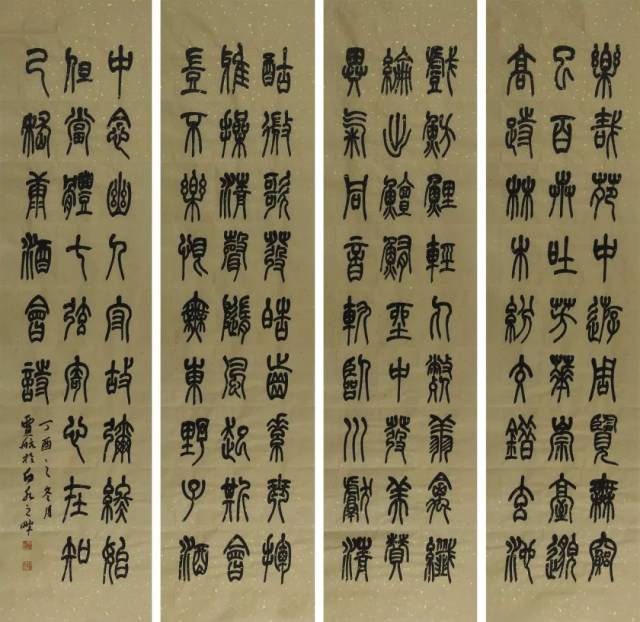 樂哉苑中遊周覽無窮
已百卉吐芳華崇臺邈
高跱林木紛交錯玄池
戲魴鯉輕丸斃翔禽纖
綸出鱣鮪坐中發美讚
異氣同音軌臨川獻清
酤微歌發皓齒素琴揮
雅操清聲隨風起斯會
豈不樂恨無東野子酒
中念幽人守故彌終始
但當體七弦寄心在知
己嵇康酒會詩
丁酉之冬月
於百泉之畔